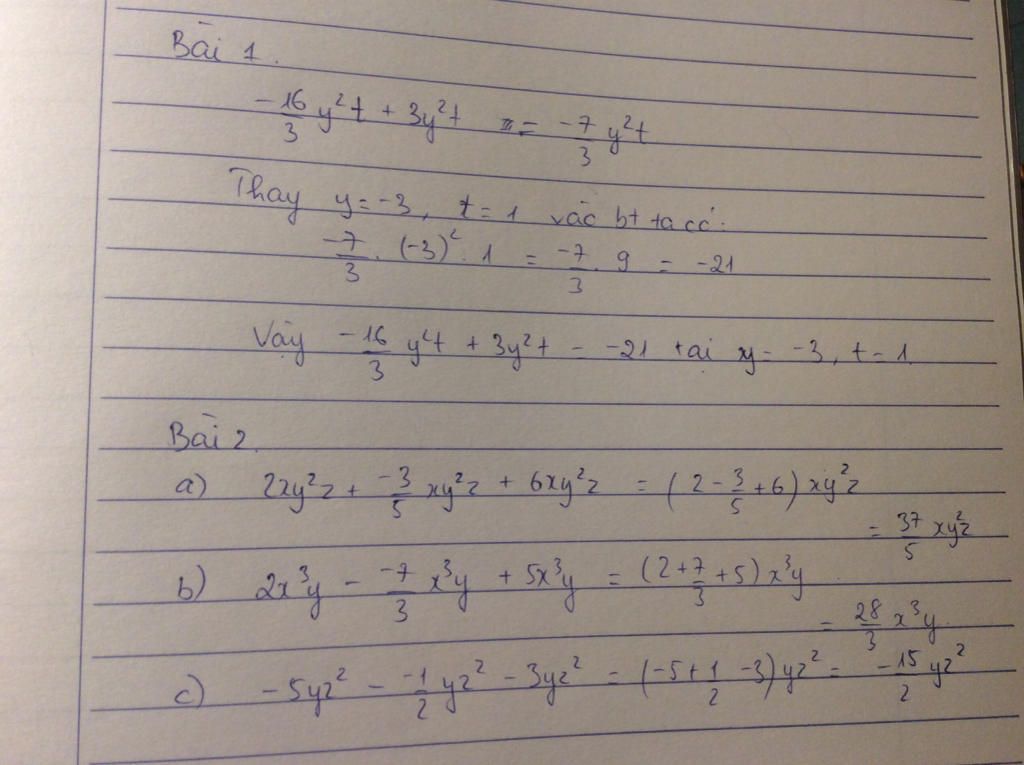 Bài 1.
-16/3 y²t + 3y²t = -7/3 y²t
Thay y = -3, t = 1 vào bt ta có:
-7/3 . (-3)² . 1 = -7/3 . 9 = -21
Vậy -16/3 y²t + 3y²t = -21 tại y = -3, t = 1.
Bài 2.
a) 2xy²z + -3/5 xy²z + 6xy²z = (2 - 3/5 + 6) xy²z
= 37/5 xy²z
b) 2x³y - -7/3 x³y + 5x³y = (2 + 7/3 + 5) x³y
= 28/3 x³y.
c) -5yz² - -1/2 yz² - 3yz² = (-5 + 1/2 - 3) yz² = -15/2 yz²